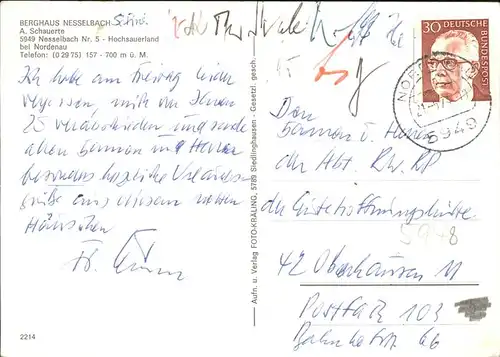 BERGHAUS NESSELBACH
A. Schauerte
5949 Nesselbach Nr. 5 - Hochsauerland
bei Nordenau
Telefon: (0 29 75) 157 - 700 m ü. M.
Ich habe am Freitag leider
vergessen, mich von Ihnen
zu verabschieden und sende
allen Damen und Herren
besonders herzliche Urlaubs-
grüße aus diesem netten
Häuschen
2214
Aufn. u. Verlag FOTO-KRALING, 5789 Siedlinghausen - Gesetzl. gesch.
30 DEUTSCHE BUNDESPOST
5949
Den
Damen u. Herren
der Abt. RW, RP
der Gutehoffnungshütte
5948
42 Oberhausen 11
Postfach 103
Bahnhofstr. 66